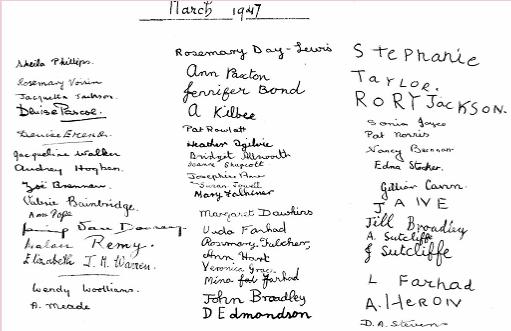 March 1947
Sheila Phillips.
Rosemary Voisin
Jacquetta Jackson.
Denise Pascoe.
Denise
Jacqueline Walker
Audrey
Zoë Brennan
Valerie Bainbridge.
Ann Pope
Remy.
Elizabeth J. H. Warren.
Wendy Woolliams.
A. Meade
Rosemary Day-Lewis
Ann Paxton
Jennifer Bond
A Kilbee
Pat Rowlatt
Heather Ogilvie
Bridget Allsworth
Shapcott
Josephine
Susan Jowett
Mary Falkiner
Margaret Dawkins
Farhad
Rosemary Fulcher,
Ann Hart
Veronica
Mina Farhad
John Broadley
D Edmondson
Stephanie
Taylor.
RORY JACKSON.
Sonia Joyce
Pat Norris
Nancy
Edna Stocker.
Gillian
JANE
Jill Broadley
A. Sutcliffe
J Sutcliffe
L Farhad
A. HERON
D. A. Stevens